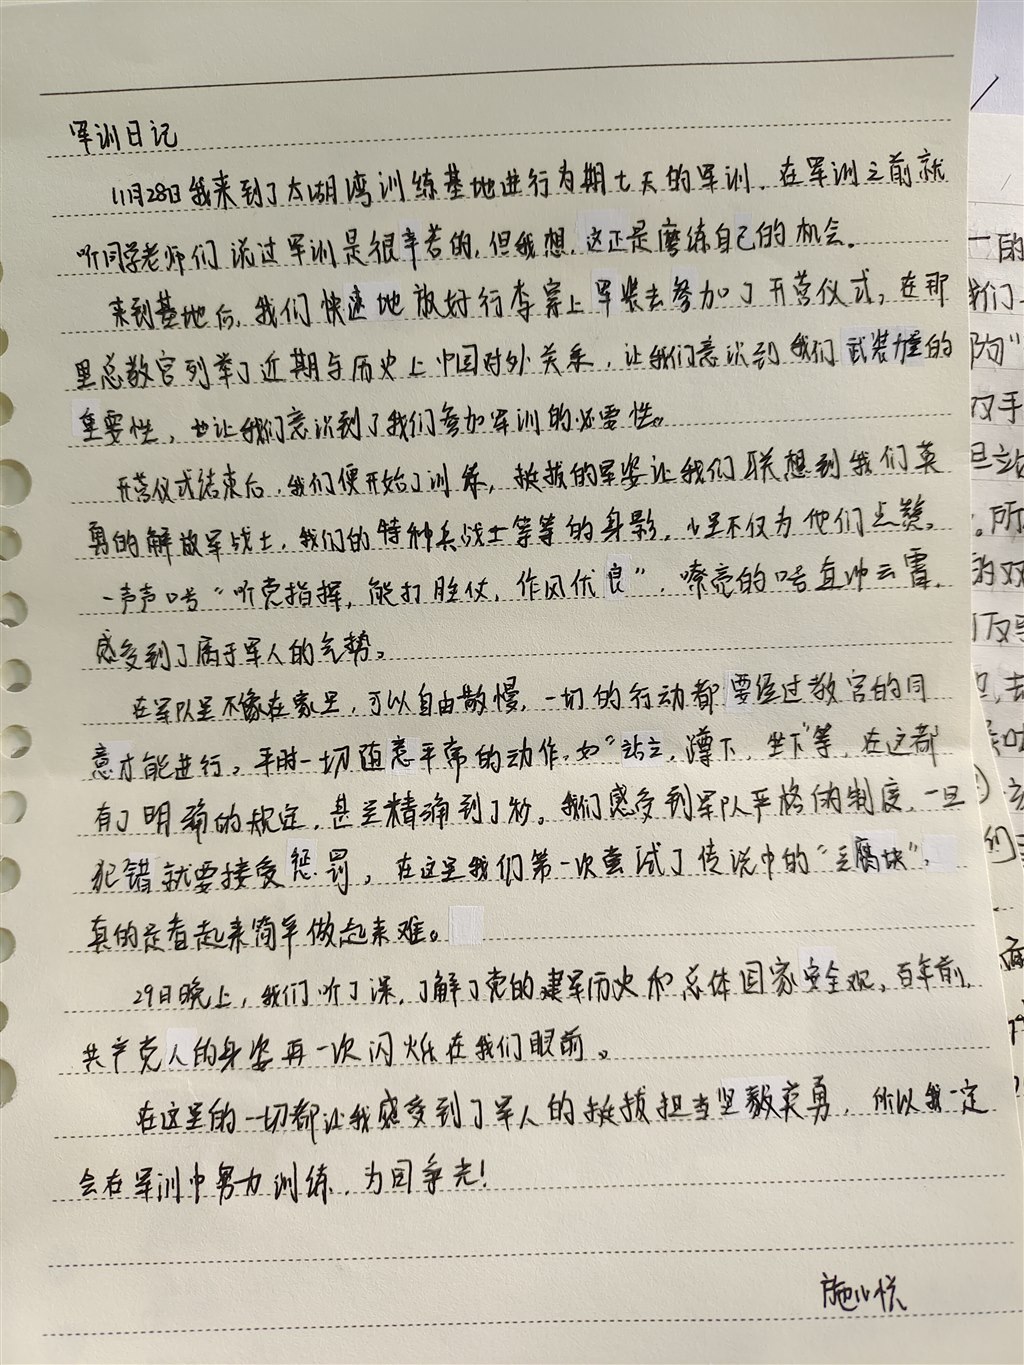 军训日记
11月28日我来到了太湖湾训练基地进行为期七天的军训,在军训之前就
听同学老师们说过军训是很辛苦的,但我想,这正是磨练自己的机会。
来到基地后,我们快速地放好行李穿上军装去参加了开营仪式,在那
里总教官列举了近期与历史上中国对外关系,让我们意识到我们武装力量的
重要性,也让我们意识到了我们参加军训的必要性。
开营仪式结束后,我们便开始了训练,挺拔的军姿让我们联想到我们英
勇的解放军战士,我们的特种兵战士等等的身影,少不仅为他们点赞。
一声声口号“听党指挥,能打胜仗,作风优良”,嘹亮的口号直冲云霄,
感受到了属于军人的气势。
在军队里不像在家里,可以自由散慢,一切的行动都要经过教官的同
意才能进行。平时一切随意平常的动作,如“站立,蹲下,坐下”等,在这都
有了明确的规定,甚至精确到了秒。我们感受到军队严格的制度,一旦
犯错就要接受惩罚,在这里我们第一次尝试了传说中的“豆腐块”,
真的是看起来简单做起来难。
29日晚上,我们听了课,了解了党的建军历史和总体国家安全观。百年前,
共产党人的身姿再一次闪烁在我们眼前。
在这里的一切都让我感受到了军人的挺拔担当坚毅英勇,所以我一定
会在军训中努力训练,为国争光!
施心悦